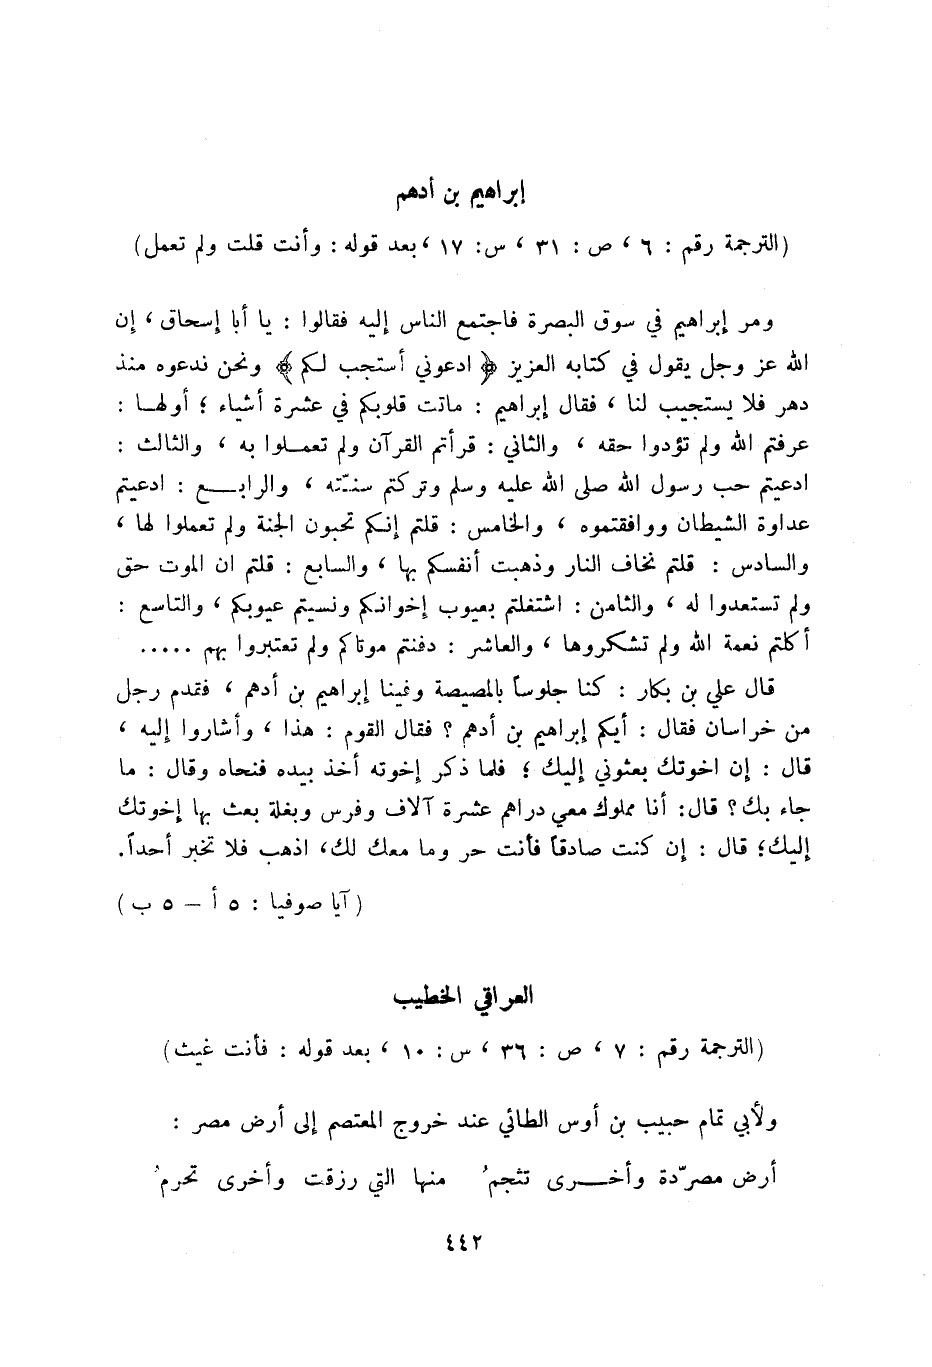 إبراهيم بن أدهم
(الترجمة رقم : ٦ ، ص : ٣١ ، س: ١٧ ، بعد قوله : وأنت قلت ولم تعمل)
ومر إبراهيم في سوق البصرة فاجتمع الناس إليه فقالوا : يا أبا إسحاق ، إن
الله عز وجل يقول في كتابه العزيز ﴿ ادعوني أستجب لكم ﴾ ونحن ندعوه منذ
دهر فلا يستجيب لنا ، فقال إبراهيم : ماتت قلوبكم في عشرة أشياء ؛ أولها :
عرفتم الله ولم تؤدوا حقه ، والثاني : قرأتم القرآن ولم تعملوا به ، والثالث :
ادعيتم حب رسول الله صلى الله عليه وسلم وتركتم سنّته ، والرابع : ادعيتم
عداوة الشيطان ووافقتموه ، والخامس : قلتم إنكم تحبون الجنة ولم تعملوا لها ،
والسادس : قلتم نخاف النار وذهبت أنفسكم بها ، والسابع : قلتم ان الموت حق
ولم تستعدوا له ، والثامن : اشتغلتم بعيوب إخوانكم ونسيتم عيوبكم ، والتاسع :
أكلتم نعمة الله ولم تشكروها ، والعاشر : دفنتم موتاكم ولم تعتبروا بهم .....
قال علي بن بكار : كنا جلوساً بالمصيصة وفينا إبراهيم بن أدهم ، فقدم رجل
من خراسان فقال : أيكم إبراهيم بن أدهم ؟ فقال القوم : هذا ، وأشاروا إليه ،
قال : إن اخوتك بعثوني إليك ؛ فلما ذكر إخوته أخذ بيده فنحاه وقال : ما
جاء بك ؟ قال: أنا مملوك معي دراهم عشرة آلاف وفرس وبغلة بعث بها إخوتك
إليك؛ قال : إن كنت صادقاً فأنت حر وما معك لك، اذهب فلا تخبر أحداً.
(آيا صوفيا : ٥ أ – ٥ ب )
العراقي الخطيب
(الترجمة رقم : ٧ ، ص : ٣٦ ، س : ١٠ ، بعد قوله : فأنت غيث)
ولأبي تمام حبيب بن أوس الطائي عند خروج المعتصم إلى أرض مصر :
أرض مصرّدة وأخرى تثجمُ منها التي رزقت وأخرى تحرمُ
٤٤٢